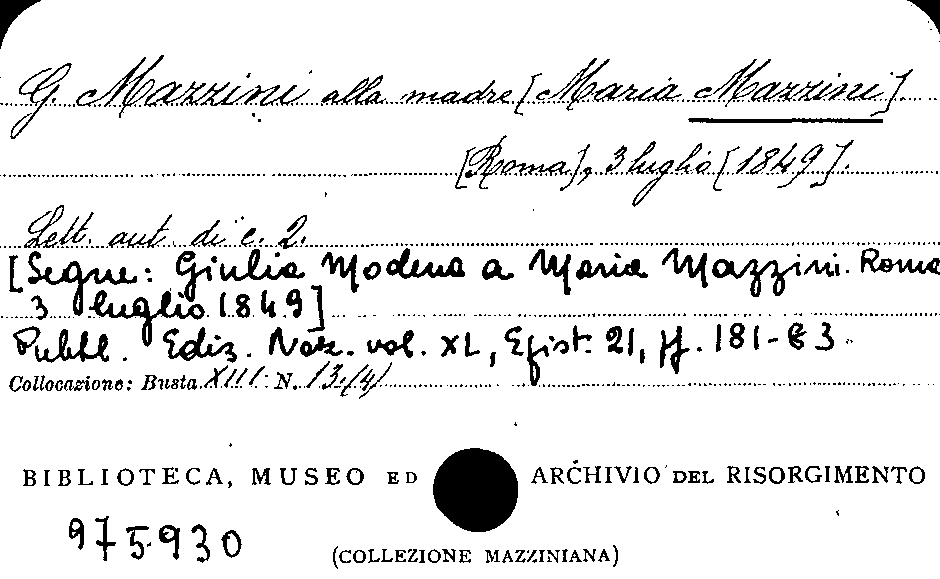 G. Mazzini alla madre [Maria Mazzini].
[Roma], 3 luglio [1849].
Lett. aut. di c. 2.
[Segue: Giulia Modena a Maria Mazzini. Roma
3 luglio 1849]
Pubbl. Ediz. Naz. vol. XL, Epist. 21, pp. 181-83.
Collocazione: Busta XIII N. 13/(4)
BIBLIOTECA, MUSEO ED ARCHIVIO DEL RISORGIMENTO
975930
(COLLEZIONE MAZZINIANA)